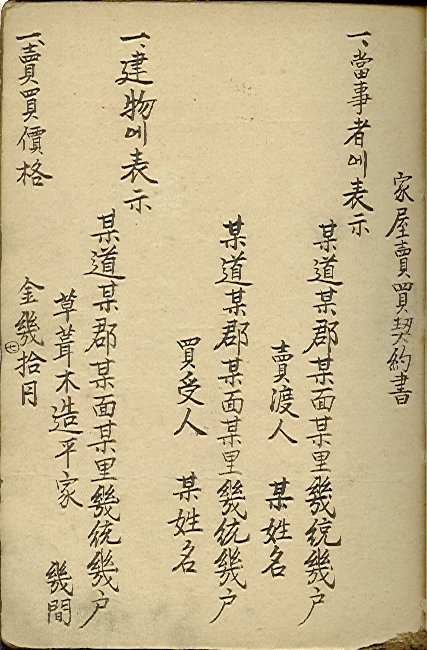 家屋賣買契約書
一、當事者에表示
某道某郡某面某里幾統幾户
賣渡人 某姓名
某道某郡某面某里幾統幾户
買受人 某姓名
一、建物에表示
某道某郡某面某里幾統幾户
草葺木造平家 幾間
一、賣買價格
金幾拾円